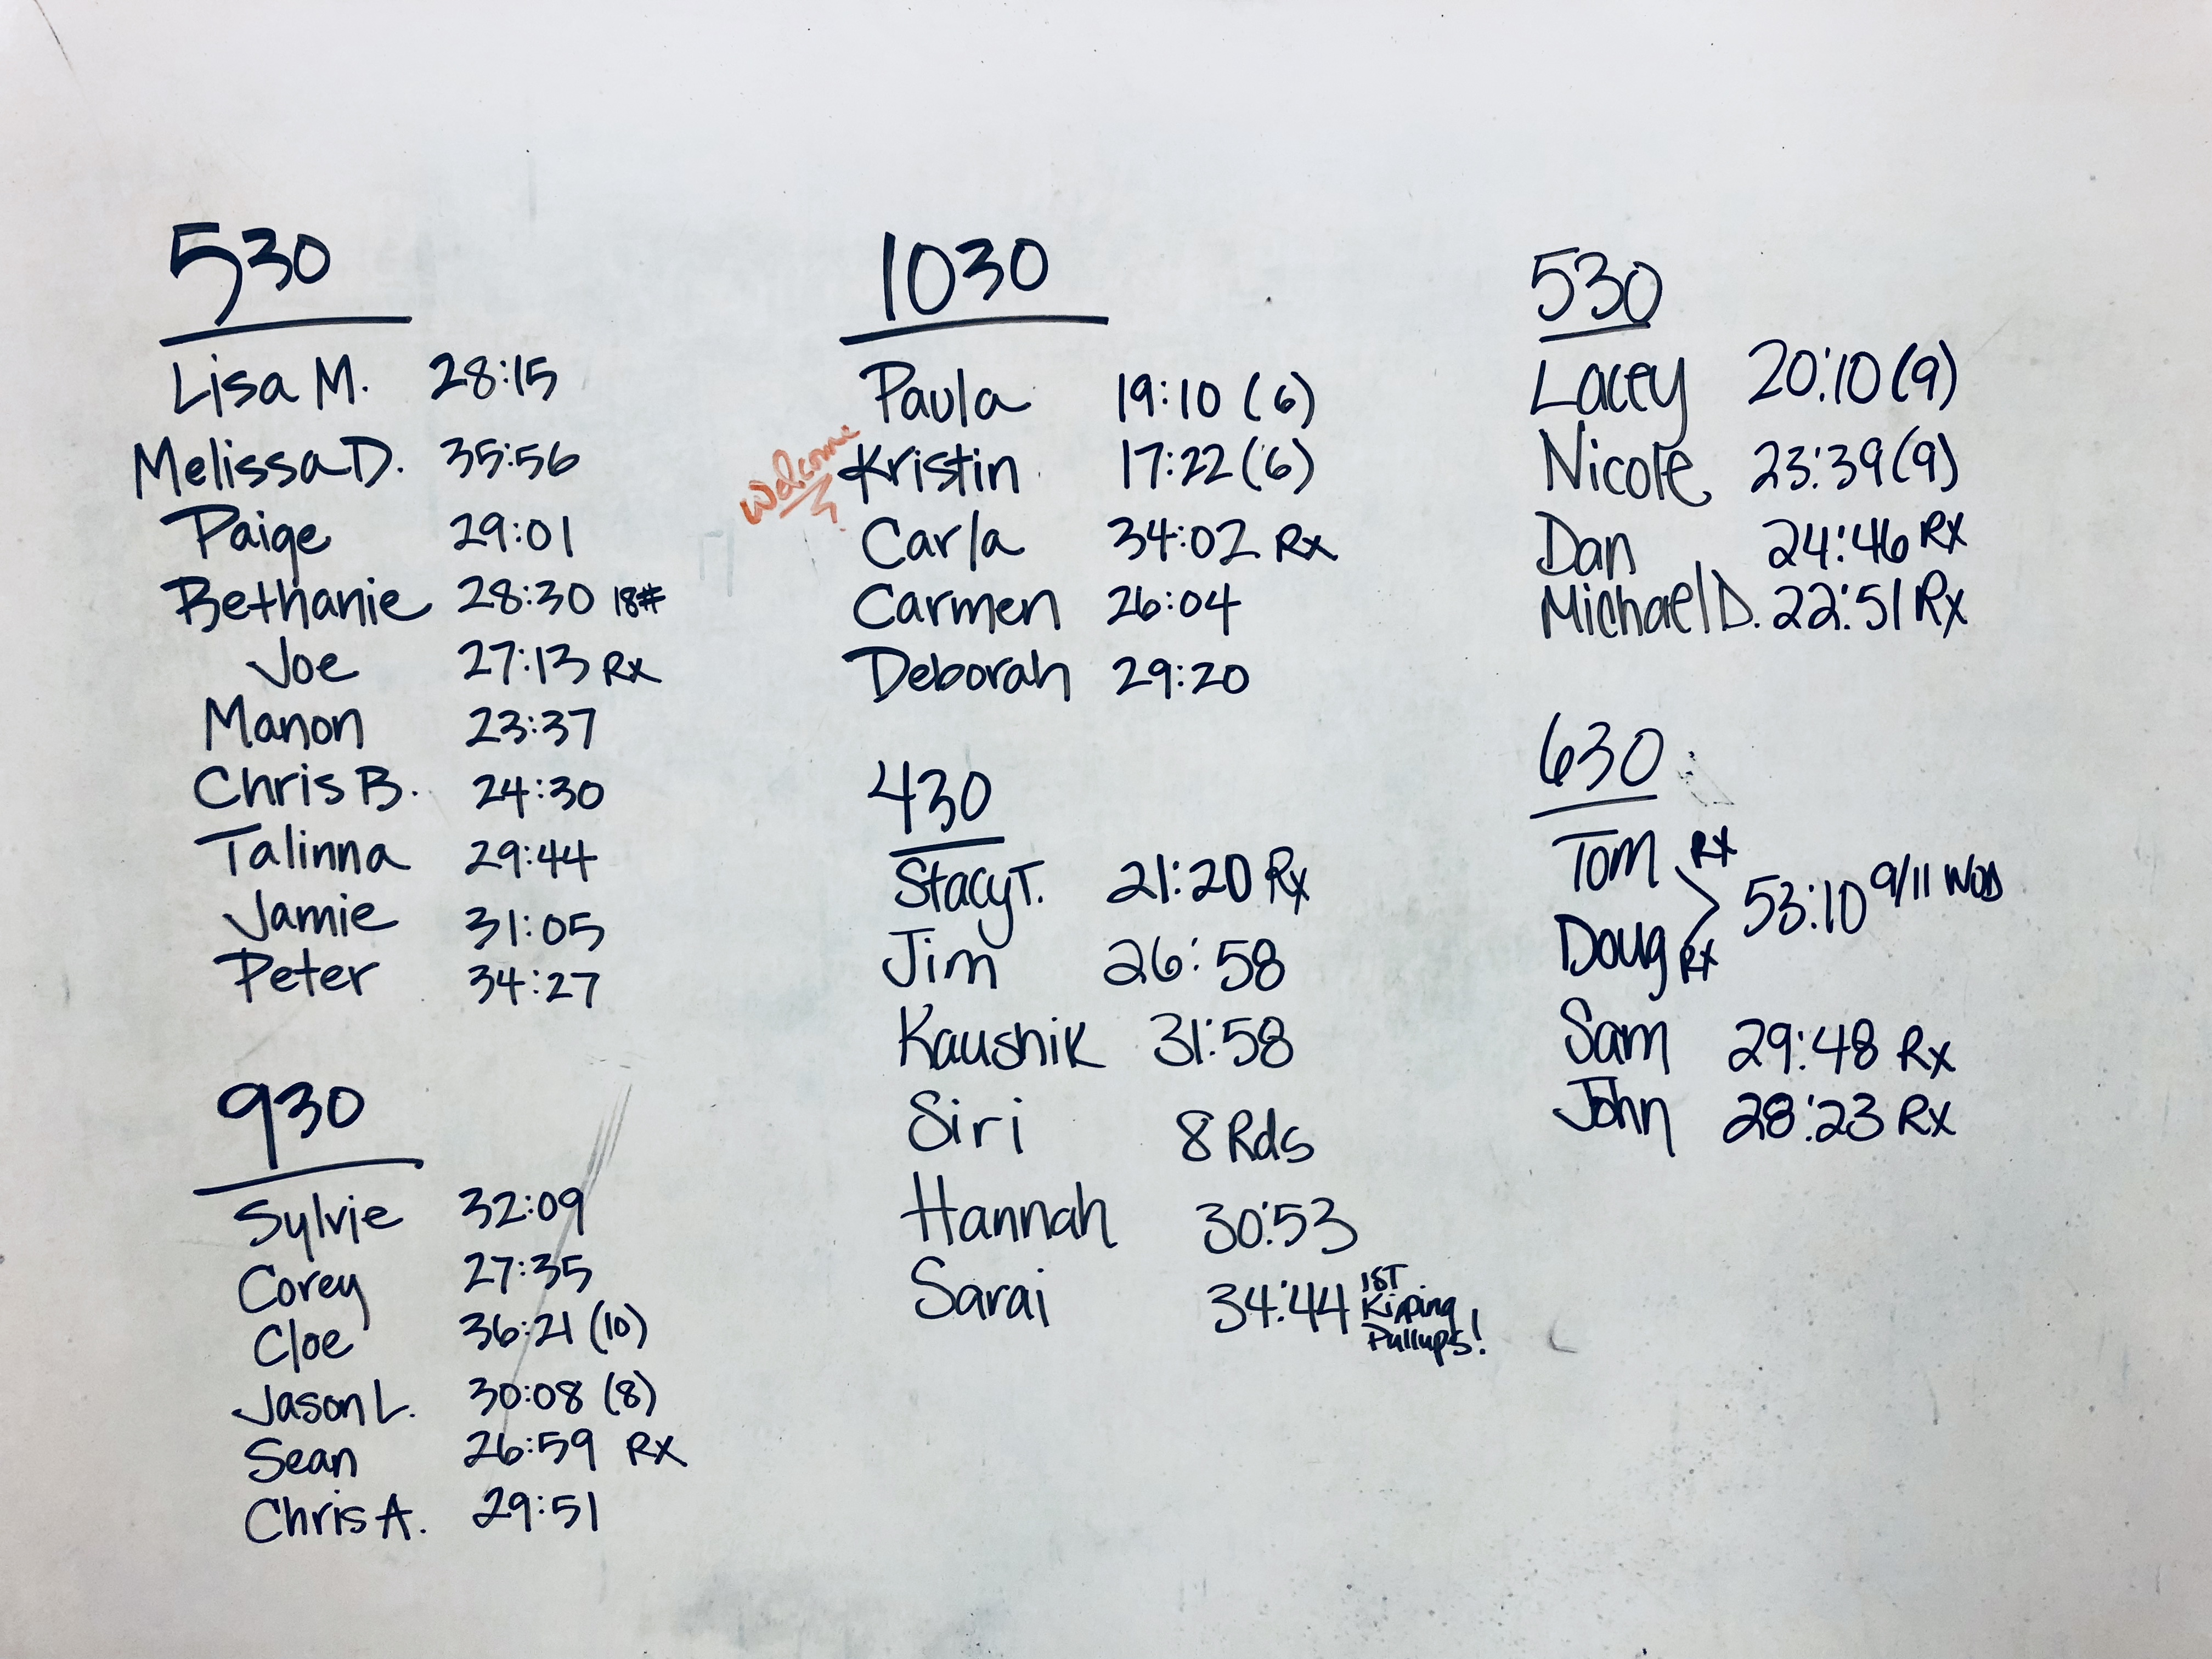 530
Lisa M. 28:15
Melissa D. 35:56
Paige 29:01
Bethanie 28:30 18#
Joe 27:13 Rx
Manon 23:37
Chris B. 24:30
Talinna 29:44
Jamie 31:05
Peter 34:27
930
Sylvie 32:09
Corey 27:35
Cloe 36:21 (10)
Jason L. 30:08 (8)
Sean 26:59 Rx
Chris A. 29:51
1030
Paula 19:10 (6)
Welcome Kristin 17:22 (6)
Carla 34:02 Rx
Carmen 26:04
Deborah 29:20
430
Stacy T. 21:20 Rx
Jim 26:58
Kaushik 31:58
Siri 8 Rds
Hannah 30:53
Sarai 34:44 1ST
Kipping
Pullups!
530
Lacey 20:10 (9)
Nicole 23:39 (9)
Dan 24:46 Rx
Michael D. 22:51 Rx
630
Tom Rx
53:10 9/11 WOD
Doug Rx
Sam 29:48 Rx
John 28:23 Rx